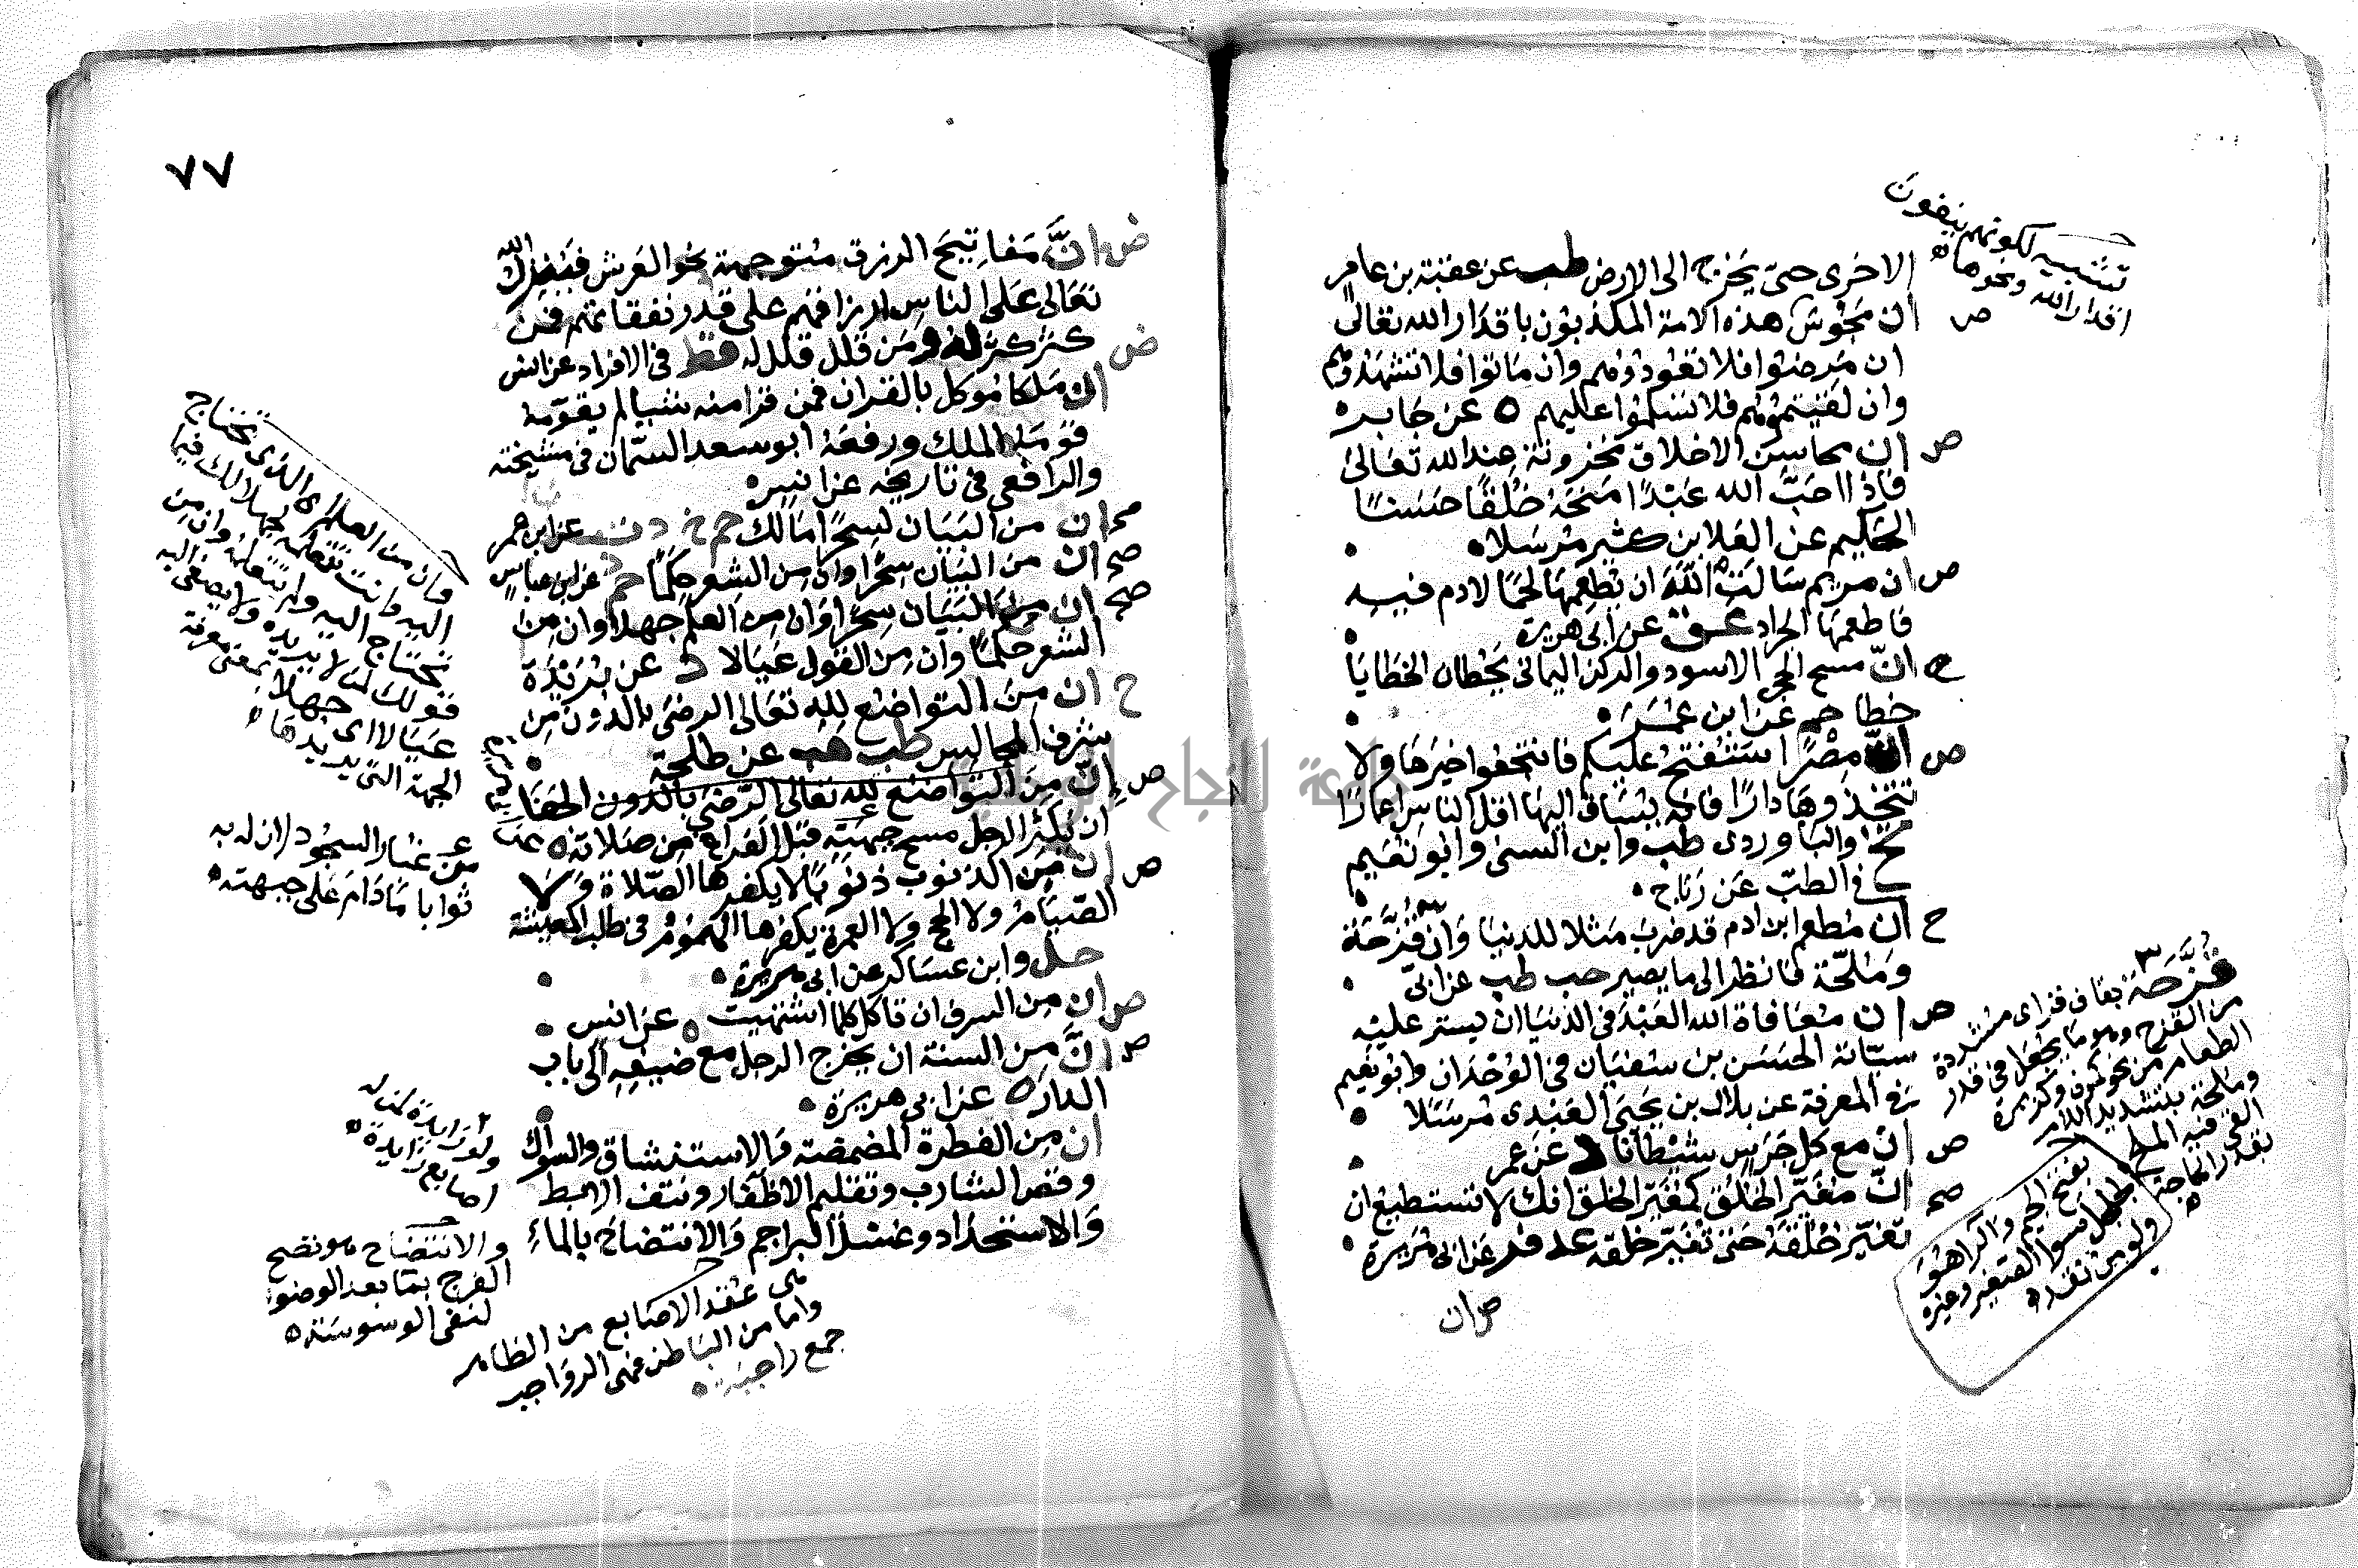 الاخرى حتى يخرج الى الارض طب عن عقبة بن عامر
ص ان مجوس هذه الامة المكذبون باقدار الله تعالى
ان مرضوا فلا تعودوهم وان ماتوا فلا تشهدوهم
وان لقيتموهم فلا تسلموا عليهم ه عن جابر
ص ان محاسن الاخلاق مخزونة عند الله تعالى
فاذا احب الله عبدا منحه خلقا حسنا
الحكيم عن العلا بن كثير مرسلا
ص ان مريم سالت الله ان يطعمها لحما لادم فيه
فاطعمها الجراد عق عن ابى هريرة
ح ان مسح الحجر الاسود والركن اليمانى يحطان الخطايا
حطا حم عن ابن عمر
ص ان مصرا ستفتح عليكم فانتجعوا خيرها ولا
تتخذوها دارا فانه يساق اليها اقل الناس اعمارا
تخ والباوردى طب وابن السنى وابو نعيم
فى الطب عن رباح
ح ان مطعم ابن ادم قد ضرب مثلا للدنيا وان قزحه
وملحه فانظر الى ما يصير حب طب عن ابى
ص ان معافاة الله العبد فى الدنيا ان يستر عليه
سيئاته الحسن بن سفيان فى الوحدان وابو نعيم
فى المعرفة عن بلال بن يحيى العبدى مرسلا
ص ان مع كل جرس شيطانا د عن عمر
صح ان مغير الخلق كمغير الخلق انك لا تستطيع ان
تغير خلقه حتى تغير خلقه عد فر عن ابى هريرة
ص ان
تشبيه لكونهم ينفون
اقدار الله ونحوها
قزحه بقاف فزاى مشددة
من القزح وهو ما يجعل فى قدر
الطعام من نحو كمون وكزبرة
وملحه بتشديد اللام
القى فيه الملح
بقدر الحاجة
بفتح الجيم والراء هو
الجلجل سوا الصغير وغيره
ولو من نقد
٧٧
ض ان مفاتيح الرزق متوجهة نحو العرش فينزل الله
تعالى على الناس ارزاقهم على قدر نفقاتهم فمن
كثر كثر له ومن قلل قلل له قط فى الافراد عن انس
ض ان ملكا موكل بالقران فمن قرا منه شيا لم يقومه
قومه الملك ورفعه ابو سعد السمان فى مشيخته
والرافعى فى تاريخه عن انس
صح ان من البيان لسحرا مالك حم خ د ت عن ابن عمر
صح ان من البيان سحرا وان من الشعر حكما حم د عن ابن عباس
صح ان من البيان سحرا وان من العلم جهلا وان من
الشعر حكما وان من القول عيالا د عن بريدة
ح ان من التواضع لله تعالى الرضى بالدون من
شرف المجالس طب هب عن طلحة
ص ان من التواضع لله تعالى الرضى بالدون الجفا
ان يكثر الرجل مسح جبهته قبل الفراغ من صلاته ه عن
ص ان من الذنوب ذنوبا لا يكفرها الصلاة ولا
الصيام ولا الحج ولا العمرة يكفرها الهموم فى طلب المعيشة
حل وابن عساكر عن ابى هريرة
ص ان من السرف ان تاكل كلما اشتهيت ه عن انس
ص ان من السنة ان يخرج الرجل مع ضيفه الى باب
الدار ه عن ابى هريرة
ان من الفطرة المضمضة والاستنشاق والسواك
وقص الشارب وتقليم الاظفار ونتف الابط
والاستحداد وغسل البراجم والانتضاح بالماء
هى عقد الاصابع من الظاهر
واما من الباطن فهى الرواجب
جمع راجبة
فان من العلم اى الذى تحتاج
اليه فانت تتعلمه جهلا لك فيما
تحتاج اليه ولم تتعلمه وان من
قولك لمن لا يريده ولا يصغى اليه
عيالا اى جهلا بمعنى معرفة
الجهة التى يريدها
عن غبار السجود لان له به
ثوابا مادام على جبهته
ولو زايدة كمن له
اصابع زايدة
والانتضاح هو نضح
الفرج بما بعد الوضو
لنفى الوسوسة